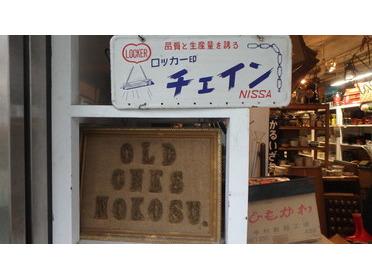 品質と生産量を誇る
LOCKER
ロッカー印
チェイン
NISSA
OLD
ONKS
NOKOSU.
かるいざ
ひもかわ